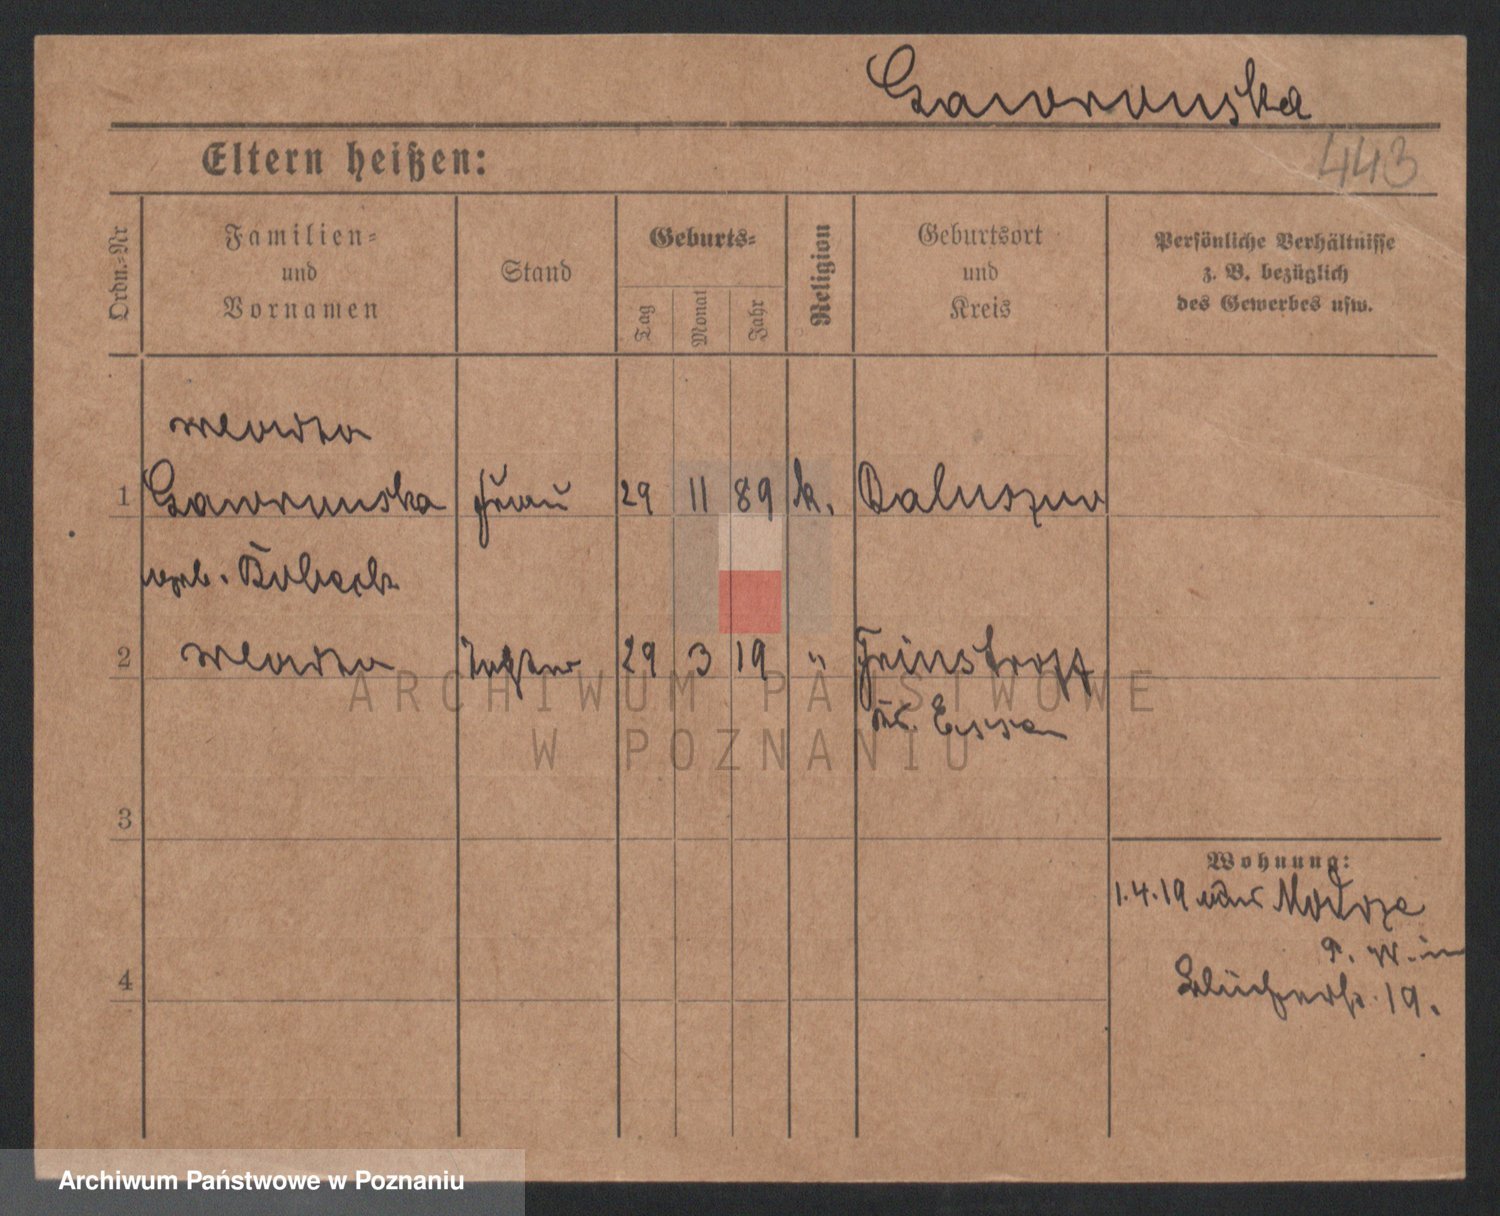 Gaworonska
443
Eltern heißen:
Ordn.-Nr
Familien-
und
Vornamen
Stand
Geburts-
Tag
Monat
Jahr
Religion
Geburtsort
und
Kreis
Persönliche Verhältnisse
z. B. bezüglich
des Gewerbes usw.
Wladia
1 Gaworonska Frau 29 11 89 k.
geb.
2 Wladia Tochter 29 3 19 "
Kr. Essen
3
Wohnung:
1.4.19 von
4
Blücherstr. 19.
ARCHIWUM PAŃSTWOWE
W POZNANIU
Archiwum Państwowe w Poznaniu